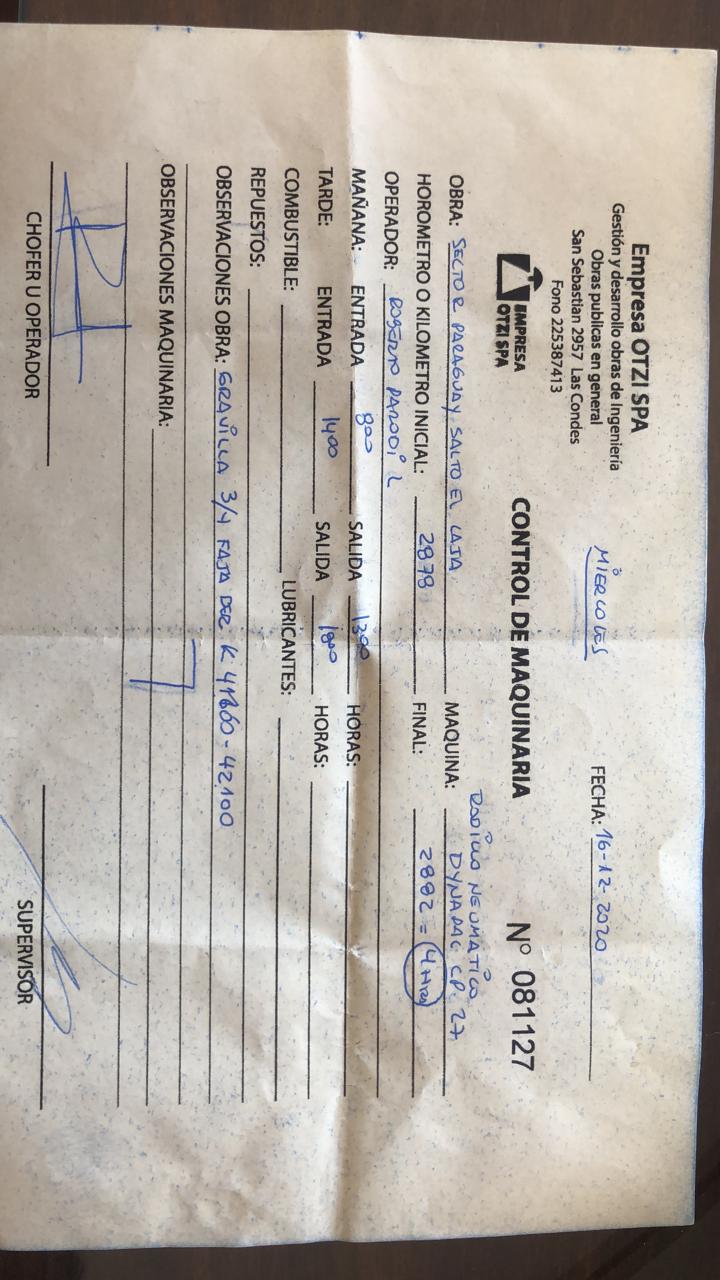 Empresa OTZI SPA
Gestión y desarrollo obras de Ingeniería
Obras publicas en general
San Sebastian 2957 Las Condes
Fono 225387413
MIERCOLES
FECHA: 16-12-2020
EMPRESA
OTZI SPA
CONTROL DE MAQUINARIA
N° 081127
RODILLO NEUMATICO
OBRA: SECTOR PARAGUAY SALTO EL LAJA MAQUINA: DYNAPAC CP. 27
HOROMETRO O KILOMETRO INICIAL: 2878 FINAL: 2882 = 4 HRS
OPERADOR: ROGERIO PARODI L
MAÑANA: ENTRADA 800 SALIDA 1300 HORAS:
TARDE: ENTRADA 1400 SALIDA 1800 HORAS:
COMBUSTIBLE: LUBRICANTES:
REPUESTOS:
OBSERVACIONES OBRA: GRAVILLA 3/4 FAJA DER. K - 42.100
OBSERVACIONES MAQUINARIA:
CHOFER U OPERADOR
SUPERVISOR